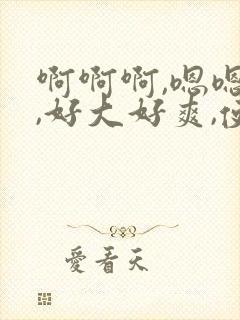 啊啊啊,嗯嗯
,好大好爽,
愛看天